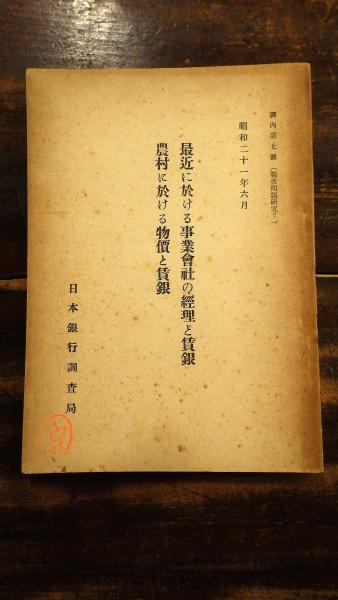 調內第七號（戰後問題硏究7）
昭和二十一年六月
最近に於ける事業會社の經理と賃銀
農村に於ける物價と賃銀
日本銀行調査局